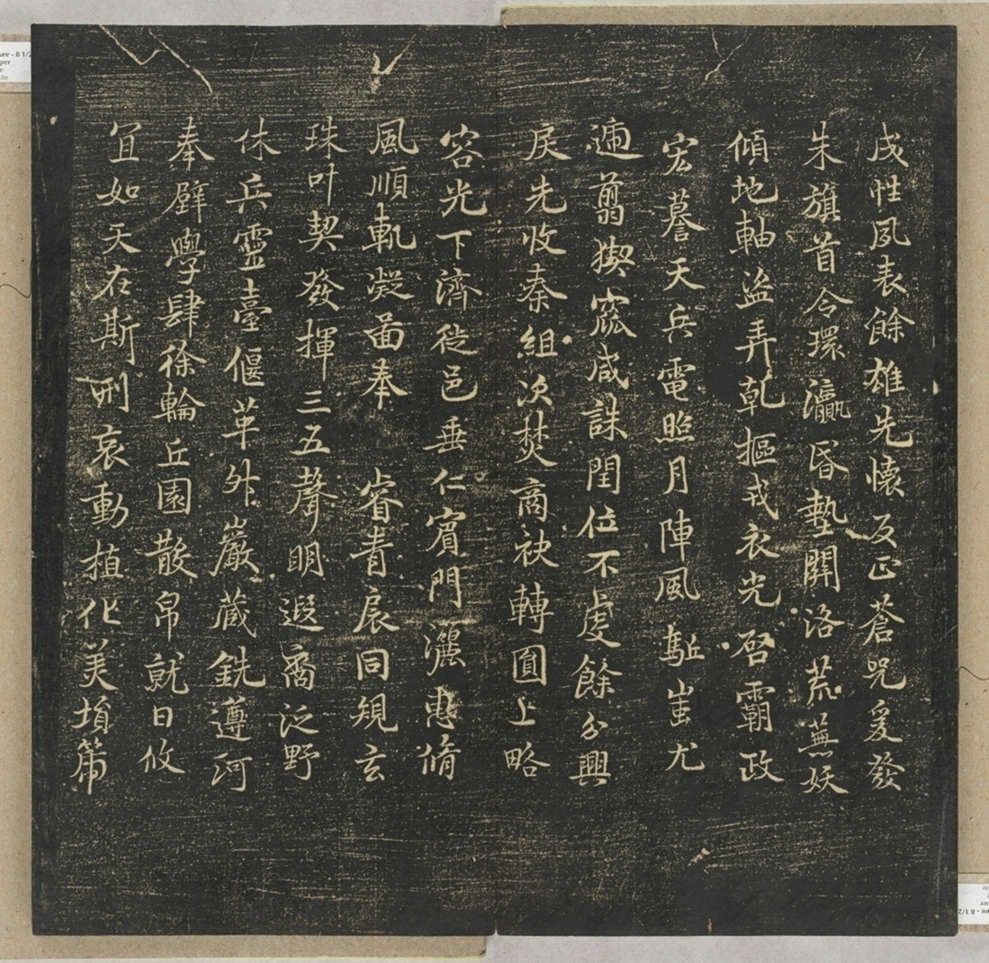 成性夙表餘雄先懷反正蒼兕爰發
朱旗首令環瀛昏墊關洛荒蕪妖
傾地軸盜弄乹樞戎衣光啓霸政
宏謩天兵電照月陣風駈蚩尤
遄翦猰窳咸誅閏位不虔餘分興
戾先收秦組次焚商袂轉圓上略
容光下濟徙邑垂仁賓門灑惠脩
風順軌凝啚奉 睿青扆同規玄
珠叶契發揮三五聲明遐裔泛野
休兵靈臺偃革外嚴藏銑遵河
奉璧學肆徐輪丘園散帛就日攸
宜如天在斯刑哀動植化美塤篪